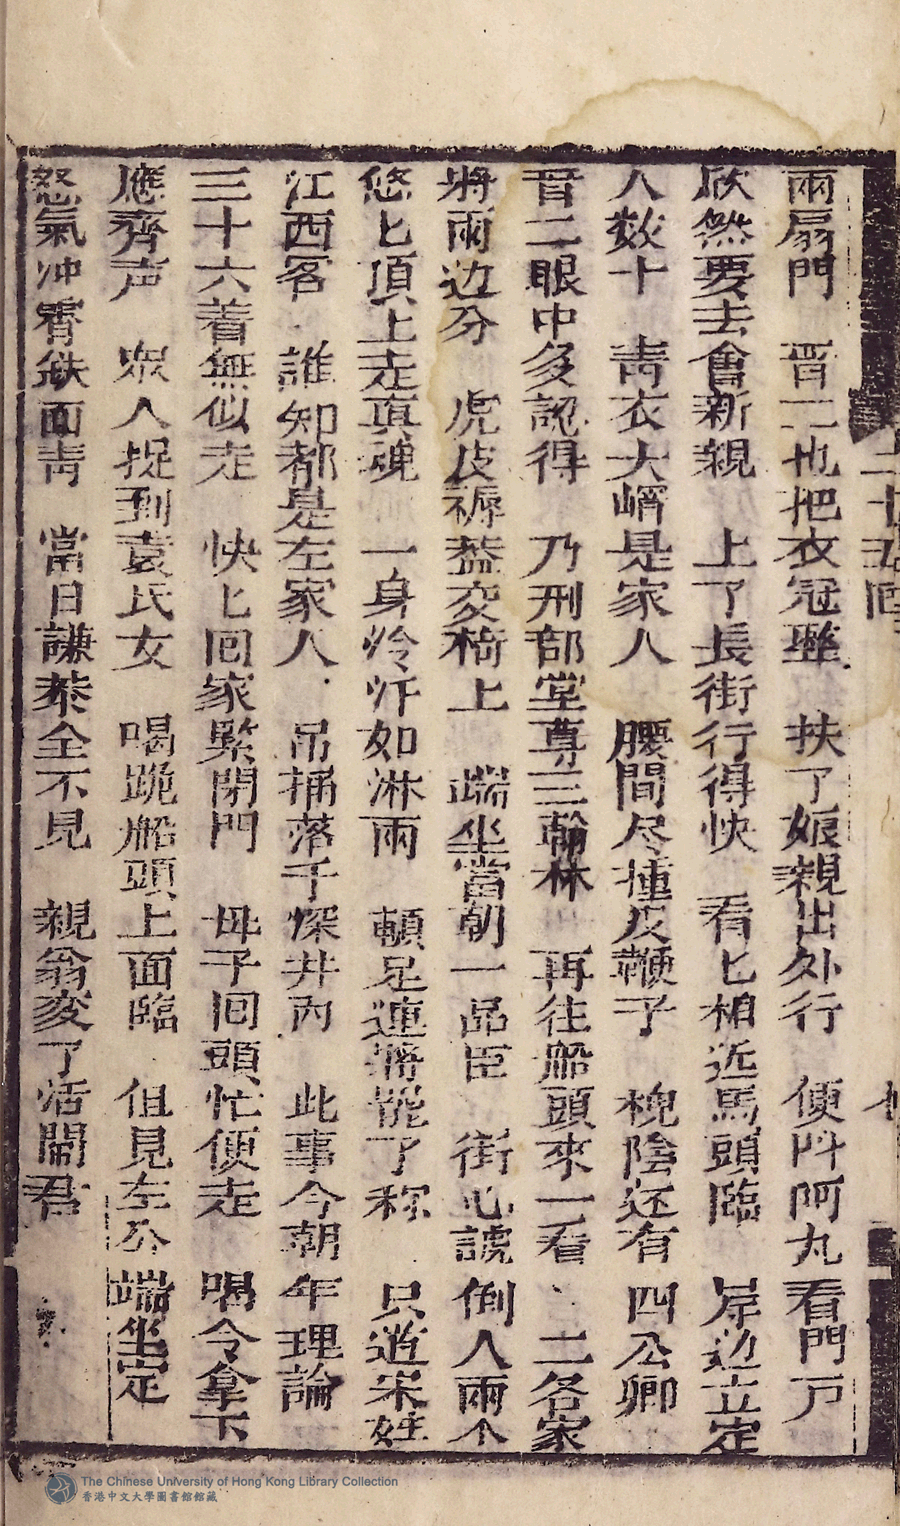 二十五回
兩扇門　晋二也把衣冠整　扶了娘親出外行　便叫阿丸看門戶
欣然要去會新親　上了長街行得快　看匕相近馬頭臨　岸边立定
人数十　青衣大帽是家人　腰間尽揷皮鞭子　槐陰还有四公卿
晋二眼中多認得　乃刑部堂尊三翰林　再往船頭來一看　二各家
將兩边分　虎皮褥盖交椅上　端坐當朝一品臣　街心諕倒人兩个
悠匕頂上走真魂　一身冷汗如淋雨　頓足連將罷了称　只道宋姓
江西客　誰知都是左家人　吊桶落千深井內　此事今朝年理論
三十六着無似走　快匕回家緊閉門　母子回頭忙便走　喝令拿下
應齊声　眾人捉到袁氏女　喝跪船頭上面臨　但見左公端坐定
怒氣冲霄鉄面青　當日謙恭全不見　親翁変了活閻君
The Chinese University of Hong Kong Library Collection
香港中文大學圖書館館藏